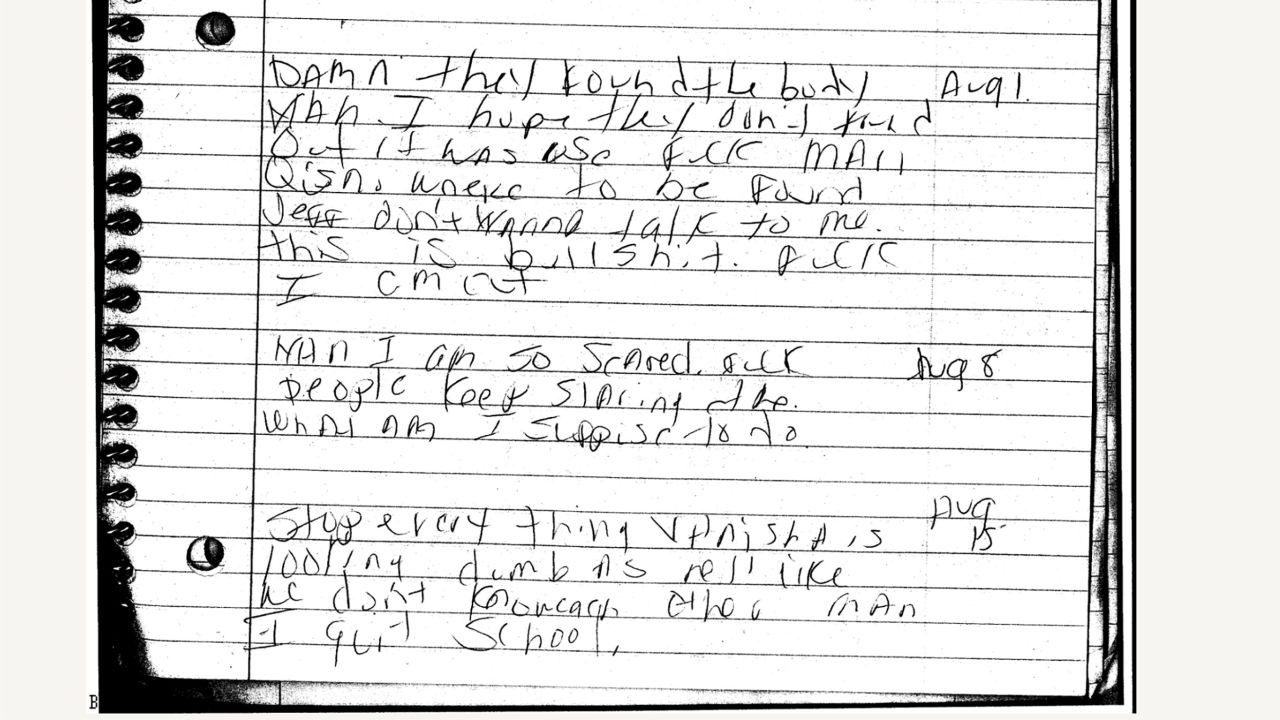 DAmn they found the body Aug 1.
MAn. I hope they don't find
Out it was use fuck MAn
wnere to be found
Jeff don't wanna talk to me.
this is bullshit. fuck
I
MAn I am so scared. fuck Aug 8
people keep staring
WhAt Am I suppise to do.
Stop every thing VAnishA is Aug 15
looking dumb As hell like
we don't know each other mAn
I quit School,
B